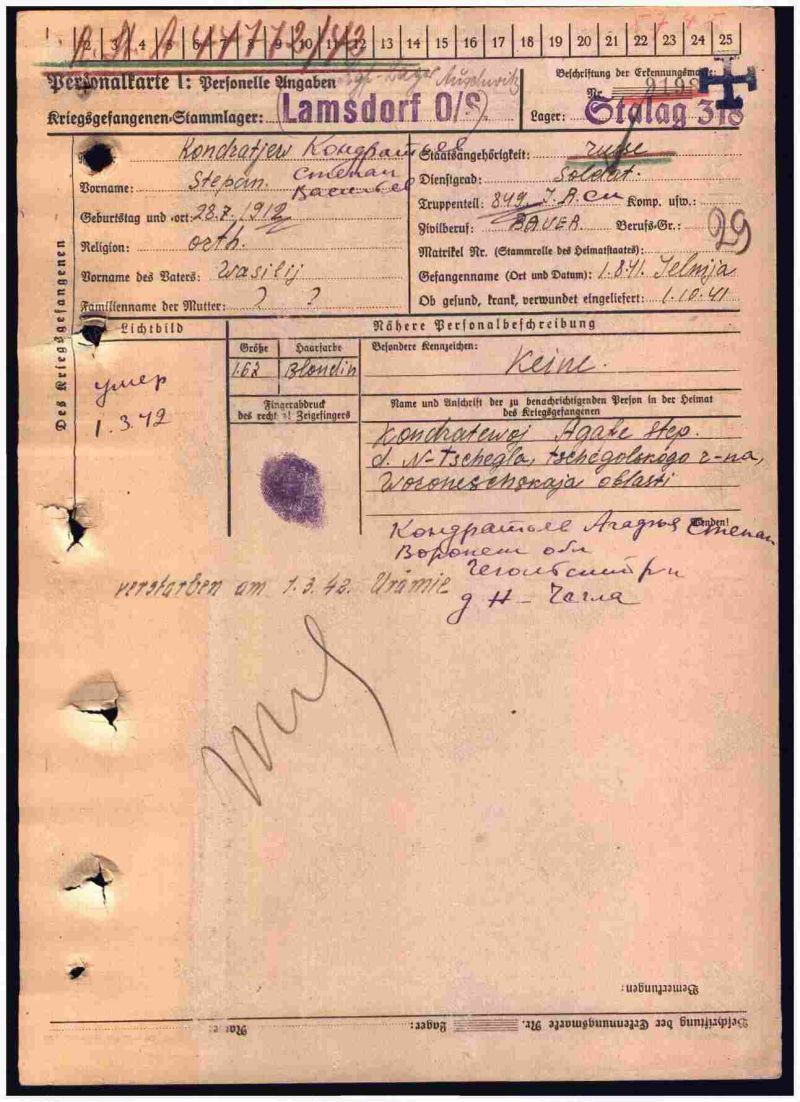 2 3 4 5 6 7 8 9 10 11 12 13 14 15 16 17 18 19 20 21 22 23 24 25
Personalkarte I: Personelle Angaben
Auschwitz
Beschriftung der Erkennungsmarke
Nr.
Kriegsgefangenen-Stammlager: Lamsdorf O/S
Lager: Stalag 318
Des Kriegsgefangenen
Kondratjew Кондратьев
Vorname: Stepan. Степан
Васильев
Geburtstag und -ort: 28.7.1912
Religion: orth.
Vorname des Vaters: Wasilij
Familienname der Mutter: ? ?
Staatsangehörigkeit: russe
Dienstgrad: Soldat.
Truppenteil: 849. Komp. usw.:
Zivilberuf: BAUER. Berufs-Gr.: 29
Matrikel Nr. (Stammrolle des Heimatstaates):
Gefangenname (Ort und Datum): 1.8.41. Jelnija
Ob gesund, krank, verwundet eingeliefert: 1.10.41
Lichtbild
умер
1.3.42
Nähere Personalbeschreibung
Größe Haarfarbe
1.62 Blondin
Besondere Kennzeichen:
Keine.
Fingerabdruck
des rechten Zeigefingers
Name und Anschrift der zu benachrichtigenden Person in der Heimat
des Kriegsgefangenen
Kondratewoj Agafe Step.
d. N-Tschegla, tschegolskogo r-na,
Woroneschskaja oblasti
Wenden!
Кондратьев Степан
Воронеш обл
д Н - Чегла
verstorben am 1.3.42. Urämie
Bemerkungen:
Beschriftung der Erkennungsmarke Nr. Lager: Name: